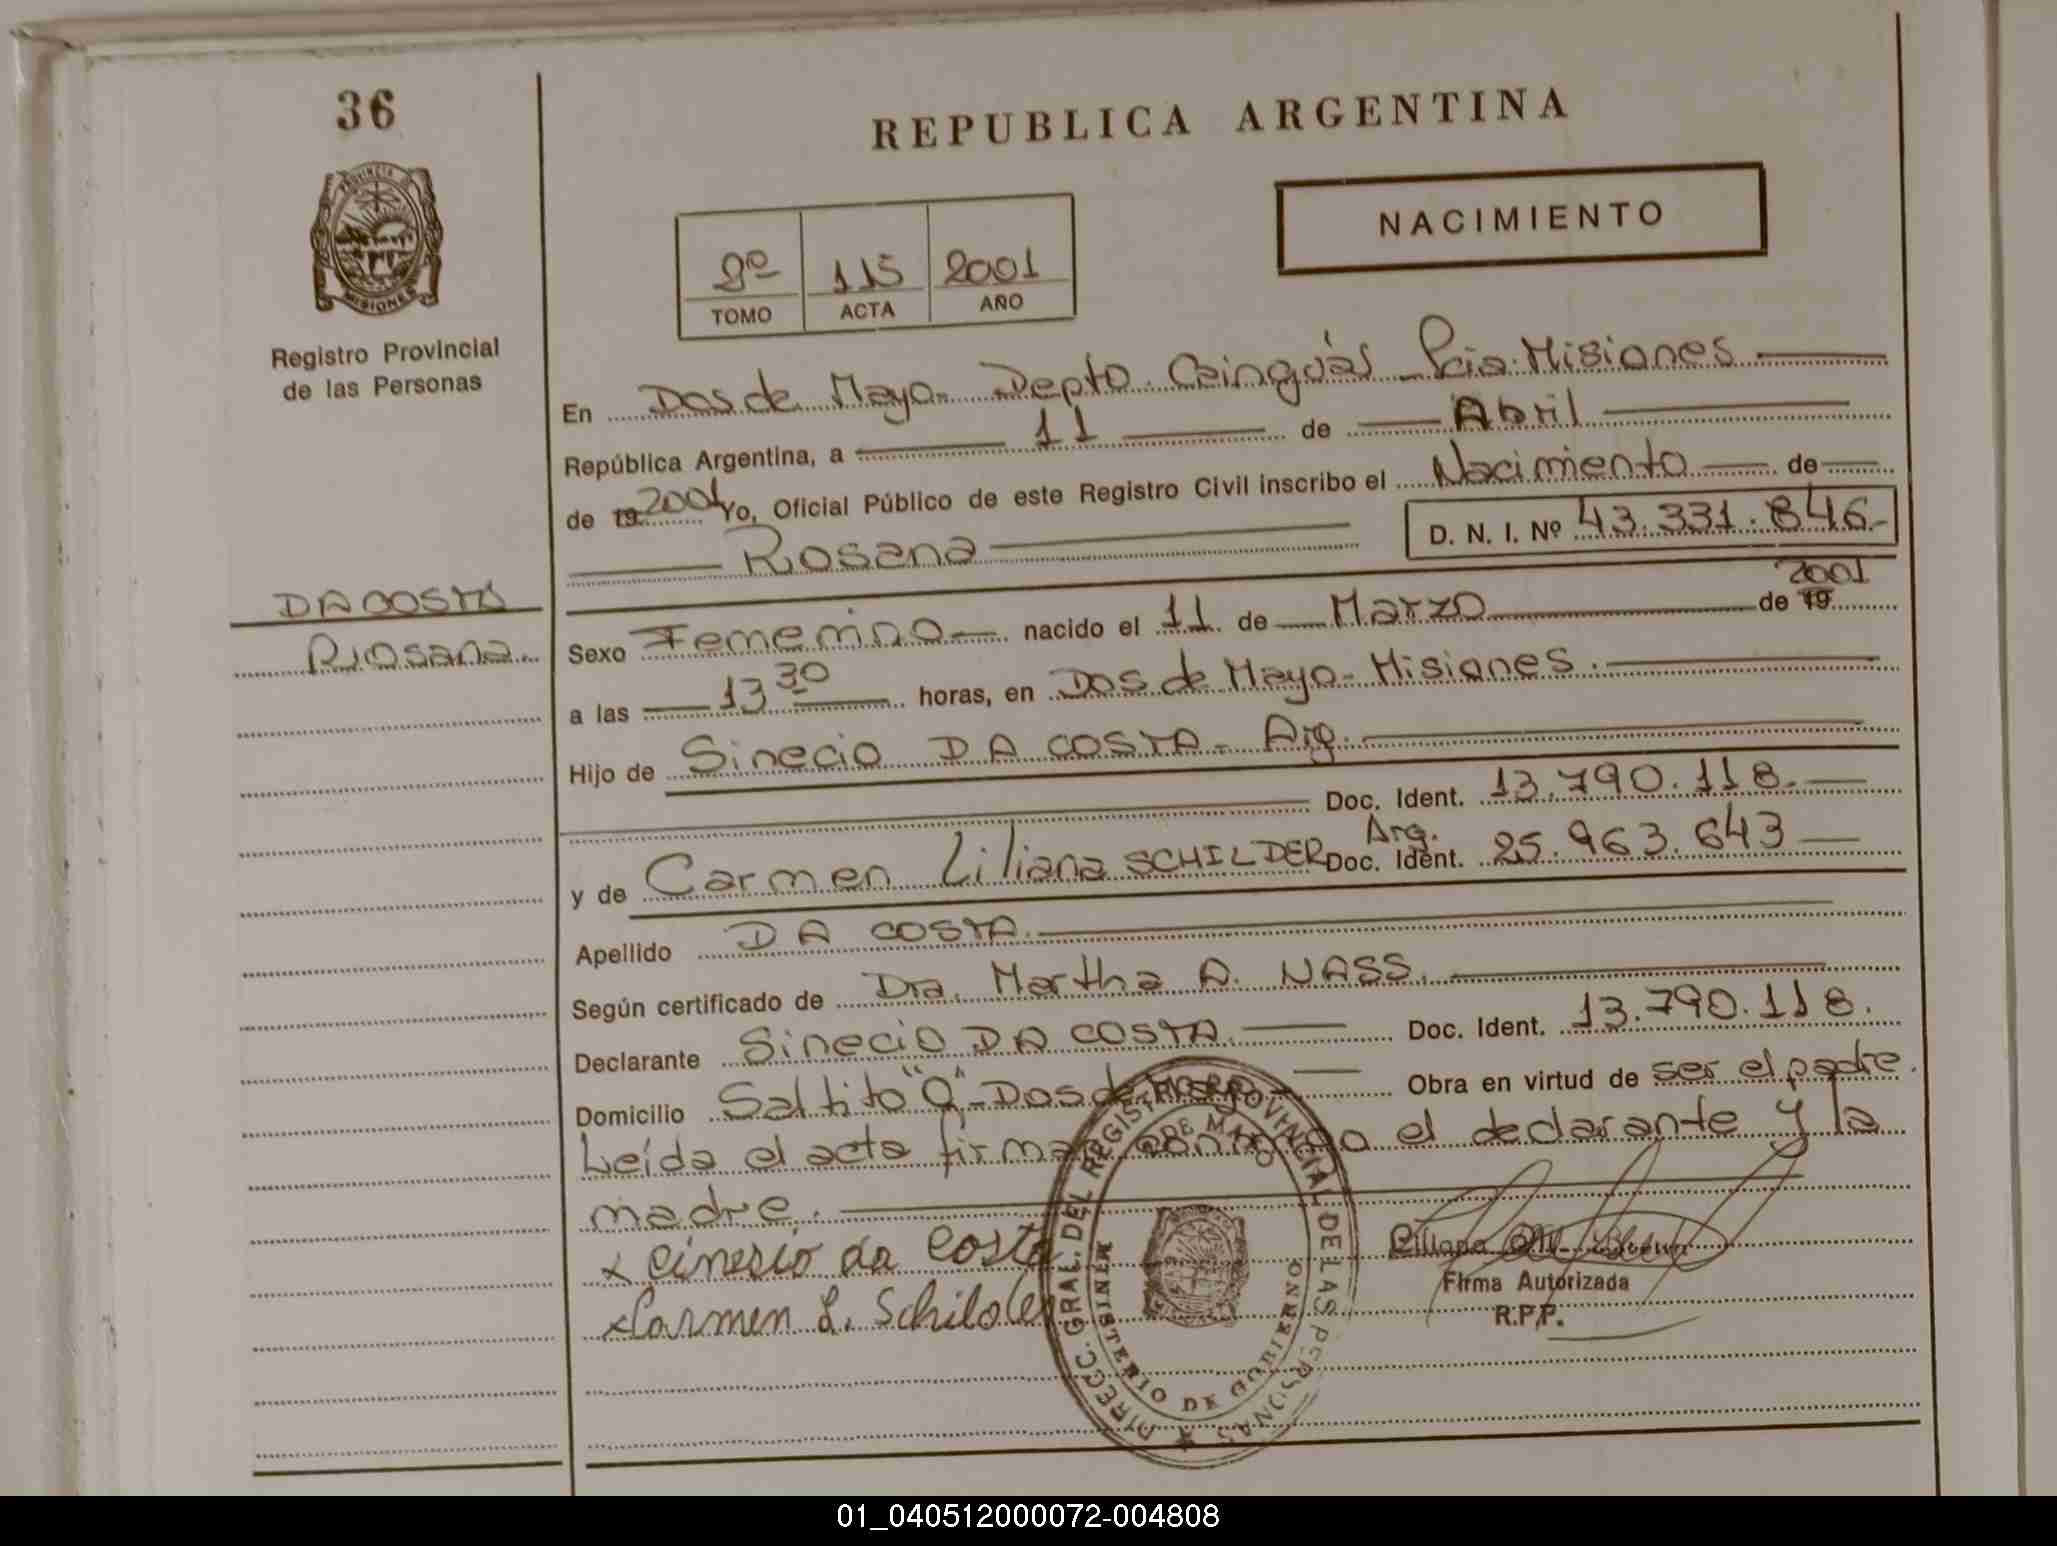 36
REPUBLICA ARGENTINA
PROVINCIA DE
MISIONES
Registro Provincial
de las Personas
NACIMIENTO
2º 115 2001
TOMO ACTA AÑO
En Dos de Mayo- Depto. Cainguás - Pcia. Misiones
República Argentina, a 11 de Abril
de 19 2001 Yo, Oficial Público de este Registro Civil inscribo el Nacimiento de
Rosana D. N. I. Nº 43.331.846.-
DA COSTA
Rosana
Sexo Femenino nacido el 11 de Marzo de 19 2001
a las 13 30 horas, en Dos de Mayo- Misiones.
Hijo de Sinecio DA COSTA- Arg.
Doc. Ident. 13.790.118.
y de Carmen Liliana SCHILDER Arg. Doc. Ident. 25.963.643
Apellido DA COSTA.
Según certificado de Dra. Martha A. NASS.
Declarante Sinecio DA COSTA. Doc. Ident. 13.790.118.
Domicilio Saltito "Q"- Dos de Mayo Obra en virtud de ser el padre.
Leída el acta firman conmigo el declarante y la
madre.
x Cinesio da Costa
x Carmen L. Schilder
Firma Autorizada
R.P.P.
DIRECC. GRAL. DEL REGISTRO PROVINCIAL DE LAS PERSONAS
DE MAYO
MINISTERIO DE GOBIERNO
01_040512000072-004808